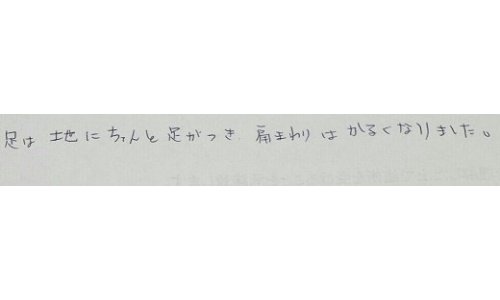 足は 地にちゃんと足がつき、肩まわりはかるくなりました。